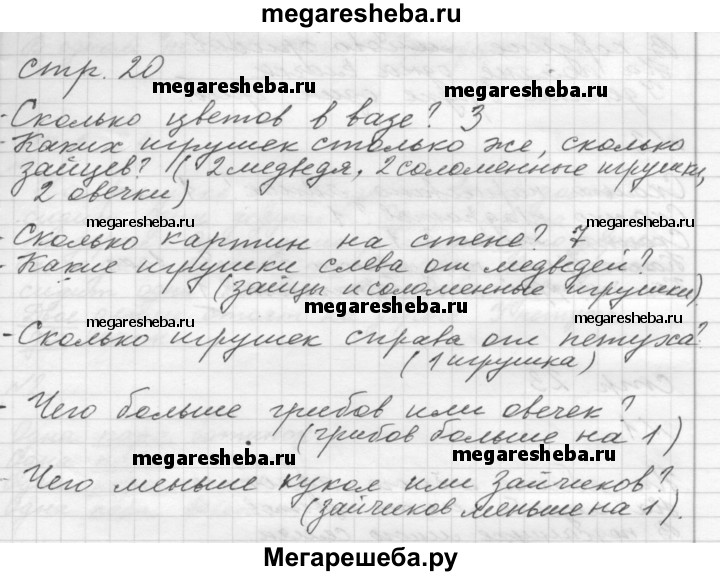 megaresheba.ru
стр. 20
megaresheba.ru
- Сколько цветов в вазе? 3
- Каких игрушек столько же, сколько
зайцев? (2 медведя, 2 соломенные игрушки,
2 овечки)
megaresheba.ru megaresheba.ru
- Сколько картин на стене? 7
- Какие игрушки слева от медведей?
(зайцы и соломенные игрушки)
megaresheba.ru
megaresheba.ru megaresheba.ru
- Сколько игрушек справа от петуха?
(1 игрушка)
- Чего больше грибов или овечек?
(грибов больше на 1)
megaresheba.ru megaresheba.ru
- Чего меньше кукол или зайчиков?
(зайчиков меньше на 1).
Мегарешеба.ру